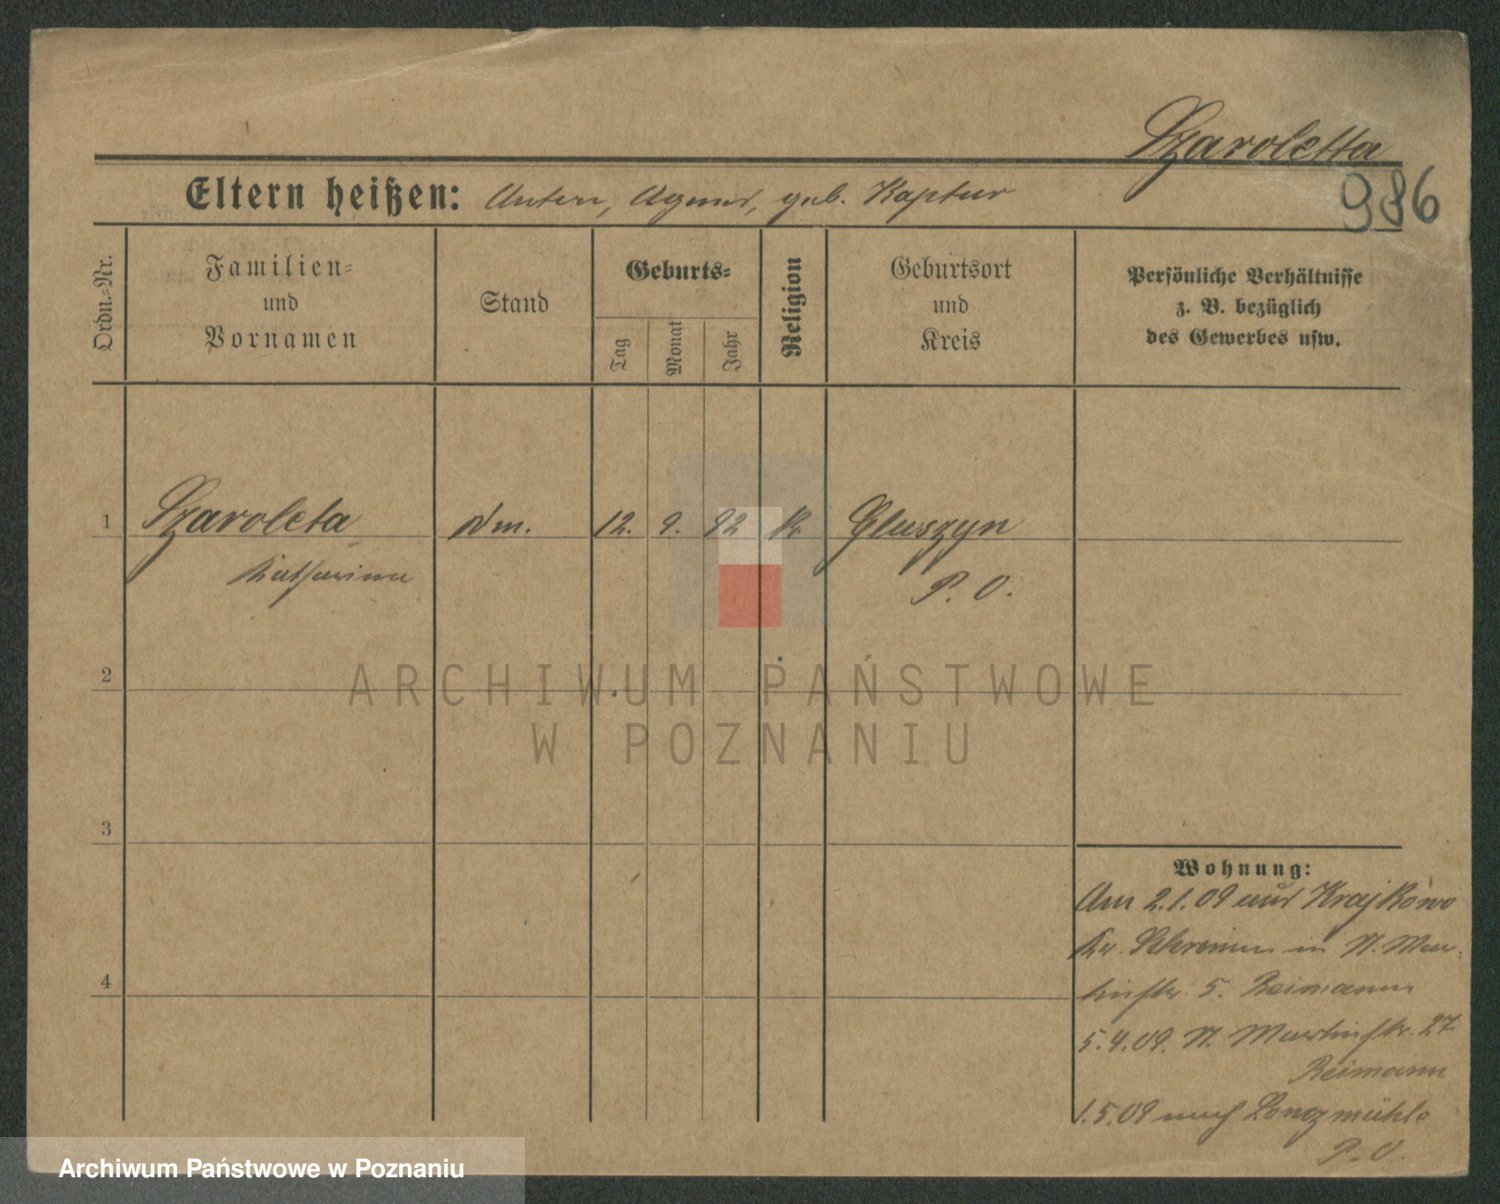 Szaroletta
986
Eltern heißen: Anton, Agnes, geb. Kaptur
Ordn.-Nr.
Familien-
und
Vornamen
Stand
Geburts-
Tag
Monat
Jahr
Religion
Geburtsort
und
Kreis
Persönliche Verhältnisse
z. B. bezüglich
des Gewerbes usw.
1 Szaroleta Dm. 12. 9. 92 k. Gluszyn
Katharina P. O.
2
3
4
Wohnung:
Am 2.1.09 aus Krajkowo
Kr. Schrimm in St. Mar-
tinstr. 5. Reimann
5.4.09. St. Martinstr. 27
Reimann
1.5.09 nach Longmühle
P. O.
ARCHIWUM PAŃSTWOWE
W POZNANIU
Archiwum Państwowe w Poznaniu